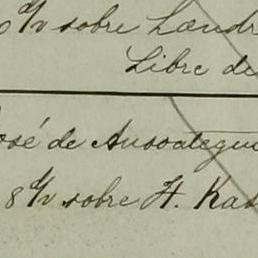 d/v sobre Landr
Libre de
José de Ansoategui
8 d/v sobre H. Kas